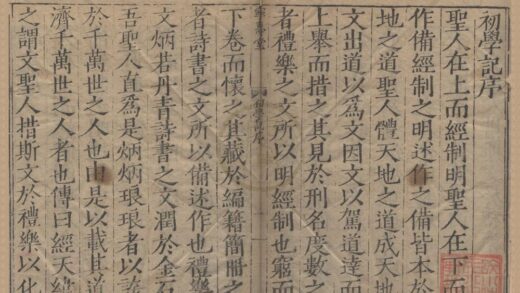 初學記序
聖人在上而經制明聖人在下而
作備經制之明述作之備皆本於
地之道聖人體天地之道成天地
文出道以爲文因文以駕道達而
上舉而措之其見於刑名度數之
者禮樂之文所以明經制也窮而
寧壽堂 初學記序
下卷而懷之其藏於編籍簡冊之
者詩書之文所以備述作也禮樂
文炳若丹青詩書之文潤於金石
吾聖人直爲是炳炳琅琅者以誇
於千萬世之人也由是以載其道
濟千萬世之人者也傳曰經天緯
之謂文聖人措斯文於禮樂以化